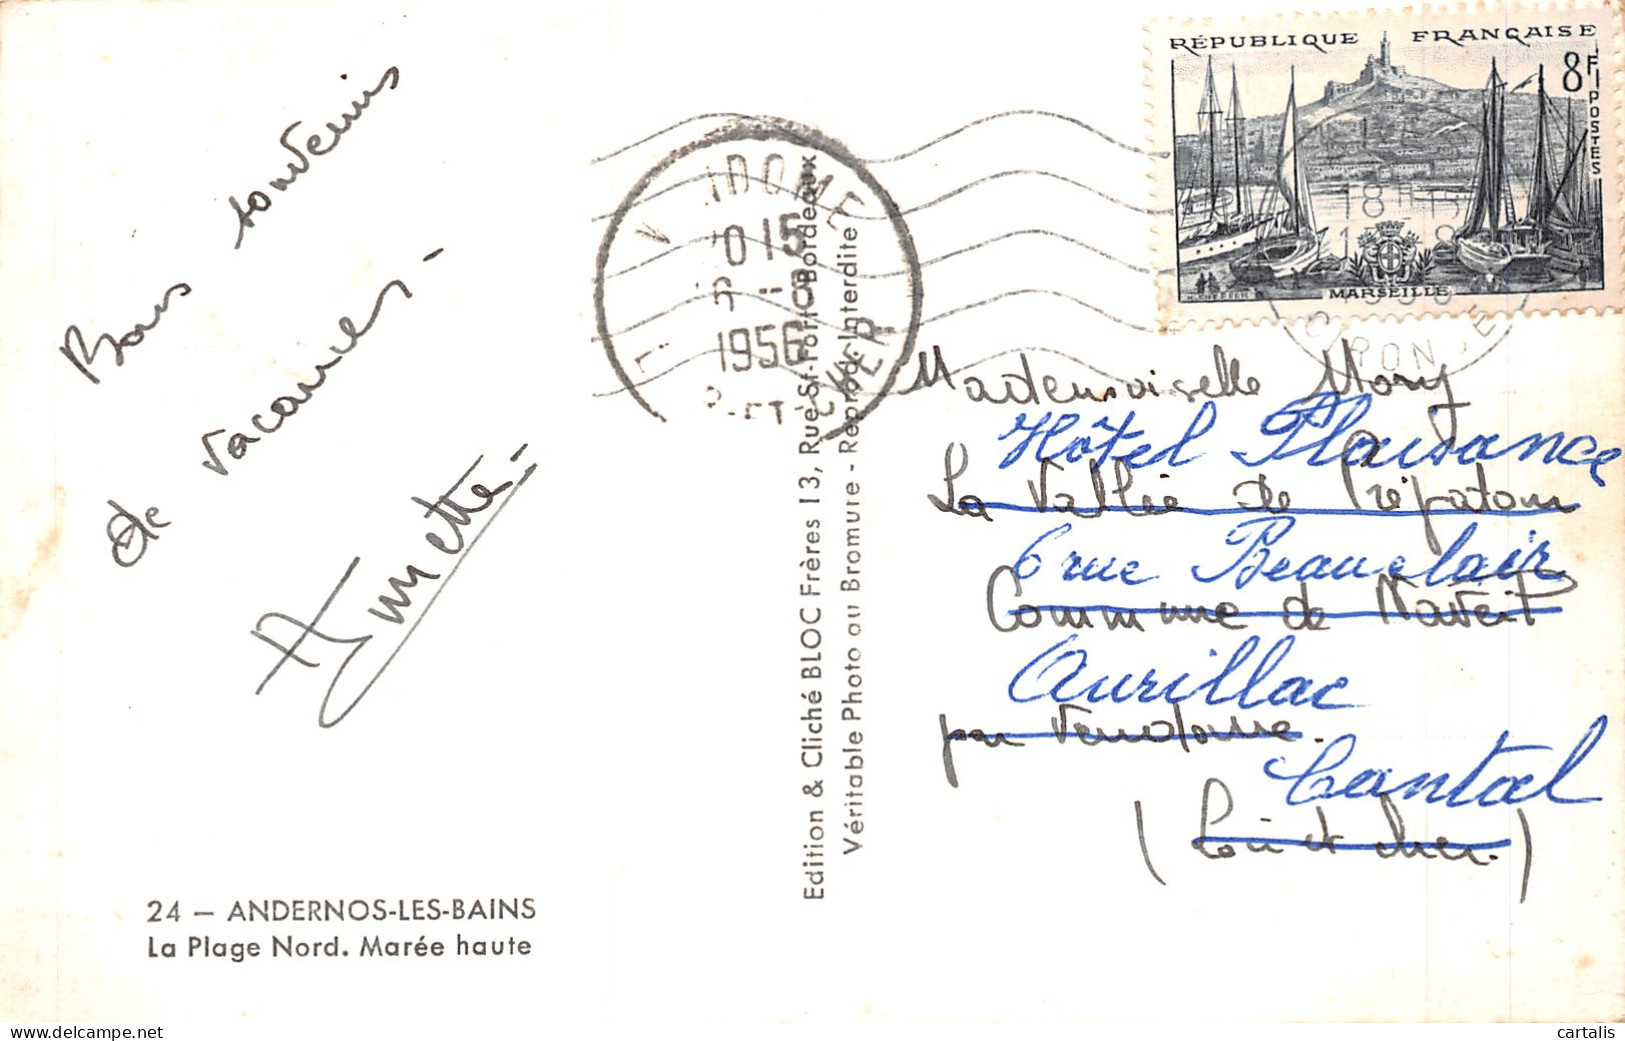 Bons souvenirs
de vacances -
Annette -
24 — ANDERNOS-LES-BAINS
La Plage Nord. Marée haute
Edition & Cliché BLOC Frères 13, Rue St-Fort - Bordeaux
Véritable Photo au Bromure - Reprod. Interdite
1956
RÉPUBLIQUE FRANÇAISE
8F
POSTES
MARSEILLE
Mademoiselle Mory
Hôtel Plaisance
La Vallée de
6 rue Beauclair
Commune de Naveil
Aurillac
par Vendome.
Cantal
(Loir et Cher.)